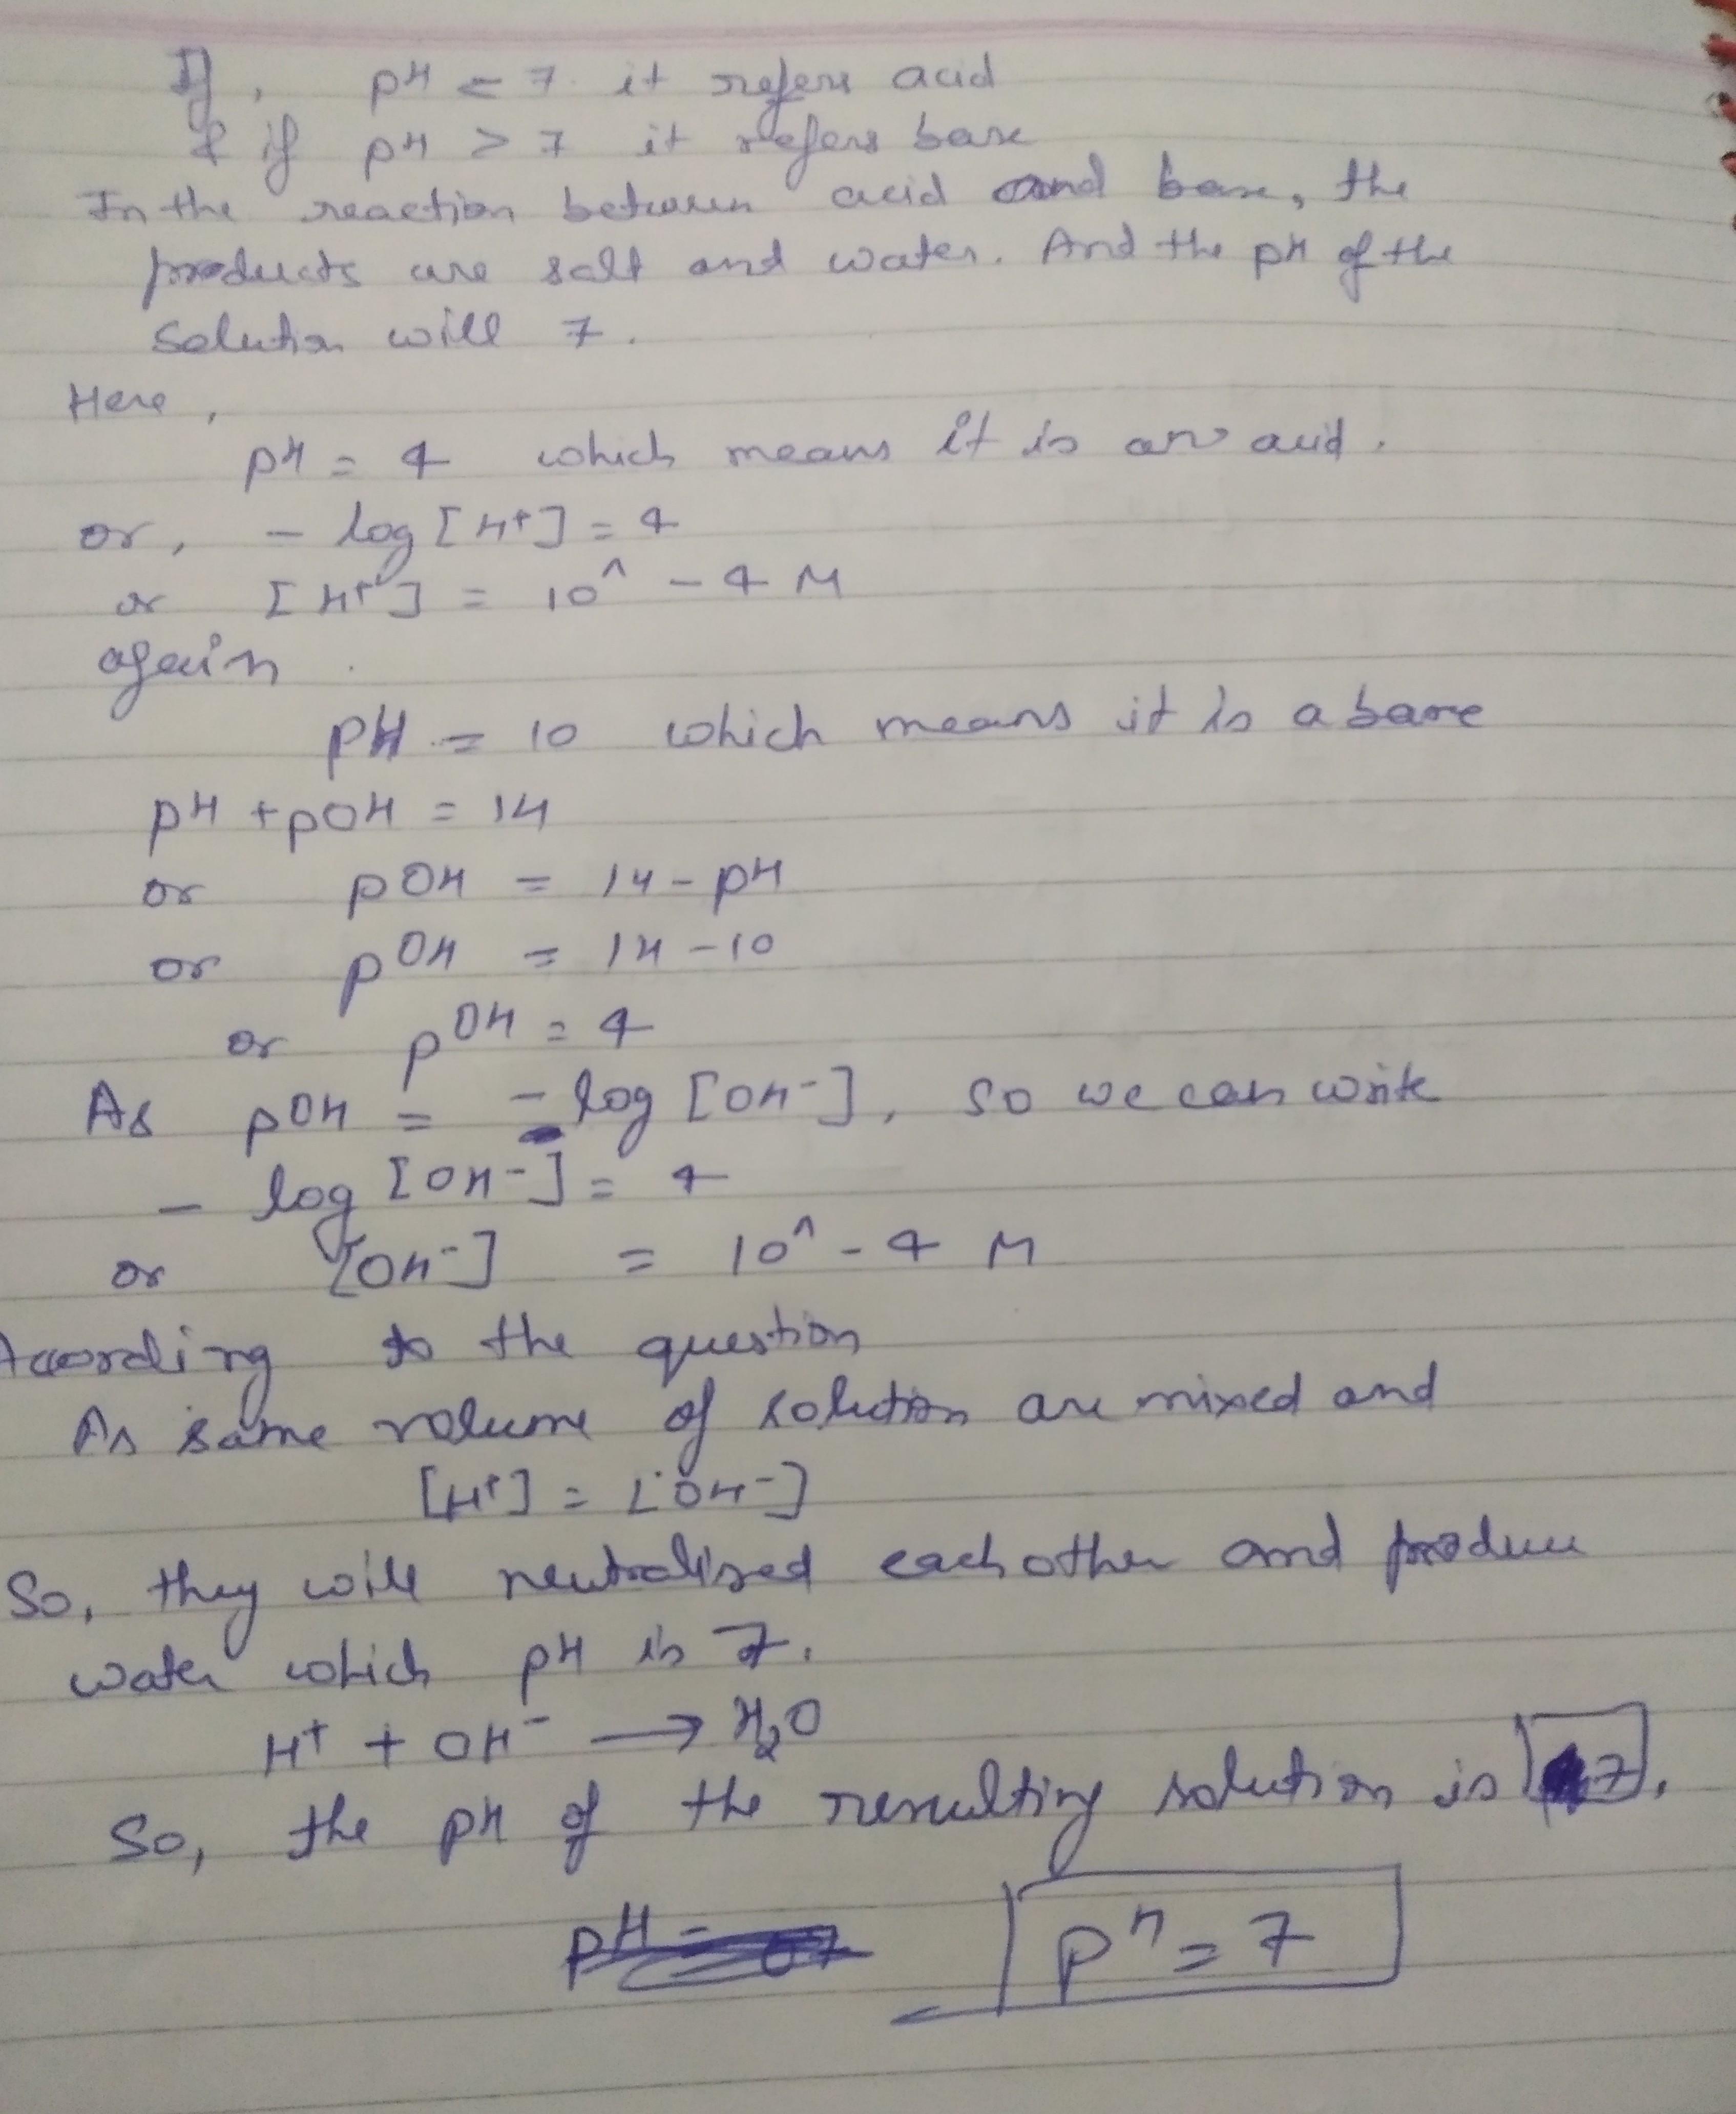 If, pH < 7 it refers acid
& if pH > 7 it refers base
In the reaction between acid and base, the
products are salt and water. And the pH of the
solution will 7.
Here,
pH = 4 which means it is an acid.
or, - log [H+] = 4
or [H+] = 10^ - 4 M
again
pH = 10 which means it is a base
pH + pOH = 14
or pOH = 14 - pH
or pOH = 14 - 10
or pOH = 4
As pOH = - log [OH-], so we can write
- log [OH-] = 4
or [OH-] = 10^ - 4 M
According to the question
As same volume of solution are mixed and
[H+] = [OH-]
So, they will neutralized each other and produce
water which pH is 7.
H+ + OH- → H2O
So, the pH of the resulting solution is 7.
pH = 7